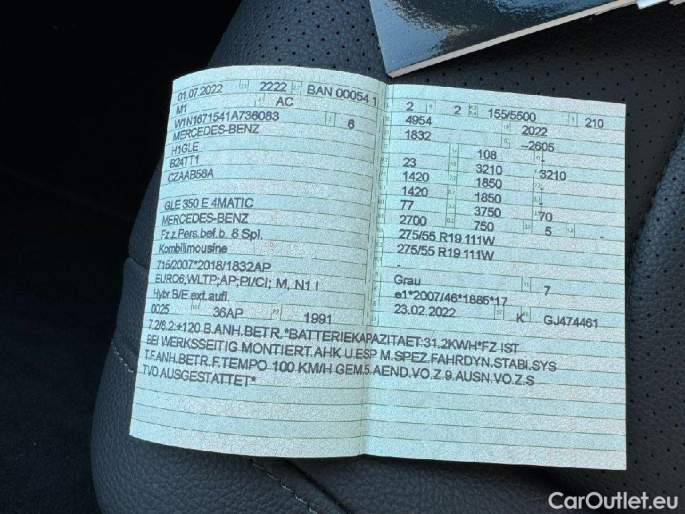 01.07.2022 2222 BAN 00054 1
M1 AC
W1N1671541A736083 6
MERCEDES-BENZ
H1GLE
B24TT1
CZAAB58A
GLE 350 E 4MATIC
MERCEDES-BENZ
Fz.z.Pers.bef.b. 8 Spl.
Kombilimousine
715/2007*2018/1832AP
EURO6;WLTP;AP;PI/CI; M, N1 I
Hybr.B/E ext.aufl.
0025 36AP 1991
2 2 155/5500 210
4954 2022
1832 –2605
108
23 3210 3210
1420 1850
1420 1850
77 3750 70
2700 750 5
275/55 R19 111W
275/55 R19 111W
Grau 7
e1*2007/46*1885*17
23.02.2022 K GJ474461
7.2/6.2:+120 B.ANH.BETR.*BATTERIEKAPAZITAET:31.2KWH*FZ IST
BEI WERKSSEITIG MONTIERT.AHK U.ESP M.SPEZ.FAHRDYN.STABI.SYS
T.F.ANH.BETR.F.TEMPO 100 KM/H GEM.5.AEND.VO.Z.9.AUSN.VO.Z.S
TVO AUSGESTATTET*
CarOutlet.eu